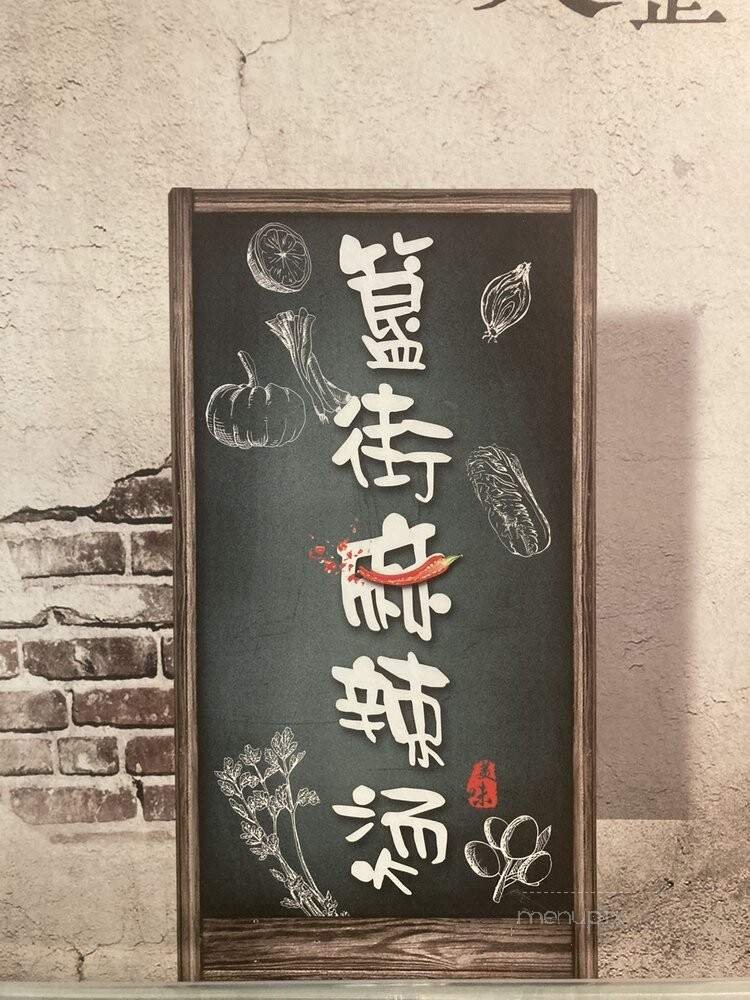 簋街麻辣烫
美味
menupix